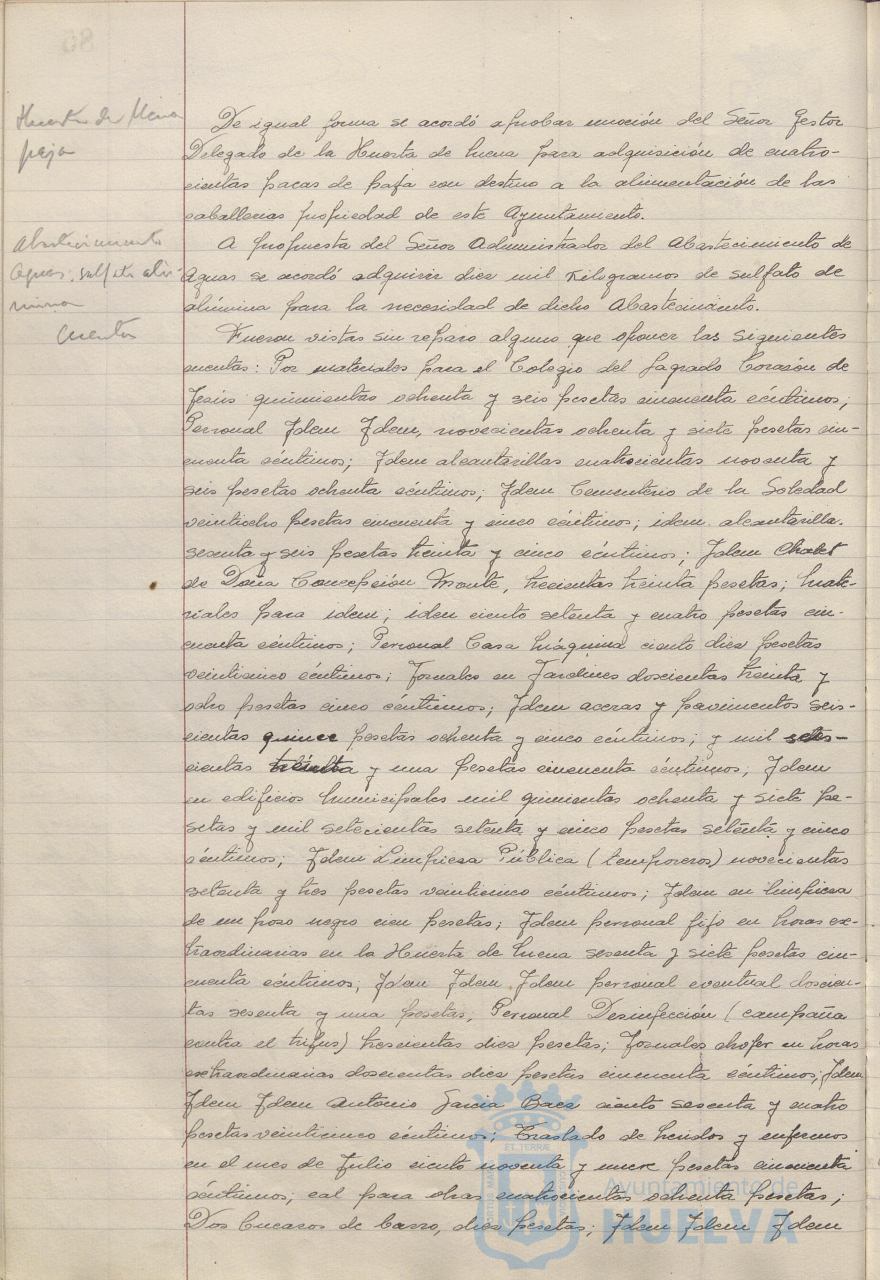 Huerta de Mena
paja
De igual forma se acordó aprobar moción del Señor Gestor
Delegado de la Huerta de Mena para adquisición de cuatro-
cientas pacas de paja con destino a la alimentación de las
caballerias propiedad de este Ayuntamiento.
Abastecimiento
Aguas. sulfato alu-
mina
A propuesta del Señor Administrador del Abastecimiento de
Aguas se acordó adquirir diez mil Kilogramos de sulfato de
alúmina para la necesidad de dicho Abastecimiento.
Cuentas
Fueron vistas sin reparo alguno que oponer las siguientes
cuentas: Por materiales para el Colegio del Sagrado Corazón de
Jesús quinientas ochenta y seis pesetas cincuenta céntimos;
Personal Idem Idem, novecientas ochenta y siete pesetas cin-
cuenta céntimos; Idem alcantarillas cuatrocientas noventa y
seis pesetas ochenta céntimos; Idem Cementerio de la Soledad
veintiocho pesetas cincuenta y cinco céntimos; idem alcantarilla.
sesenta y seis pesetas treinta y cinco céntimos; Idem Chalet
de Doña Concepción Monte, trecientas treinta pesetas; Mate-
riales para idem; idem ciento setenta y cuatro pesetas cin-
cuenta céntimos; Personal Casa Máquina ciento diez pesetas
veinticinco céntimos; Jornales en Jardines doscientas treinta y
ocho pesetas cinco céntimos; Idem aceras y pavimentos seis-
cientas quince pesetas ochenta y cinco céntimos; y mil
cientas treinta y una pesetas cincuenta céntimos, Idem
en edificios Municipales mil quinientas ochenta y siete pe-
setas y mil setecientas setenta y cinco pesetas setenta y cinco
céntimos; Idem Limpieza Pública (temporeros) novecientas
setenta y tres pesetas veinticinco céntimos; Idem en limpieza
de un pozo negro cien pesetas; Idem personal fijo en horas ex-
traordinarias en la Huerta de Mena sesenta y siete pesetas cin-
cuenta céntimos; Idem Idem Idem personal eventual doscien-
tas sesenta y una pesetas, Personal Desinfección (campaña
contra el tifus) trescientas diez pesetas; Jornales chofer en horas
extraordinarias doscientas diez pesetas cincuenta céntimos; Idem
Idem Idem Antonio Garcia Baez ciento sesenta y cuatro
pesetas veinticinco céntimos; Traslado de heridos y enfermos
en el mes de Julio ciento noventa y nueve pesetas cincuenta
céntimos; cal para obras cuatrocientas ochenta pesetas;
Dos Cucasos de barro, diez pesetas; Idem Idem Idem
Ayuntamiento de
HUELVA